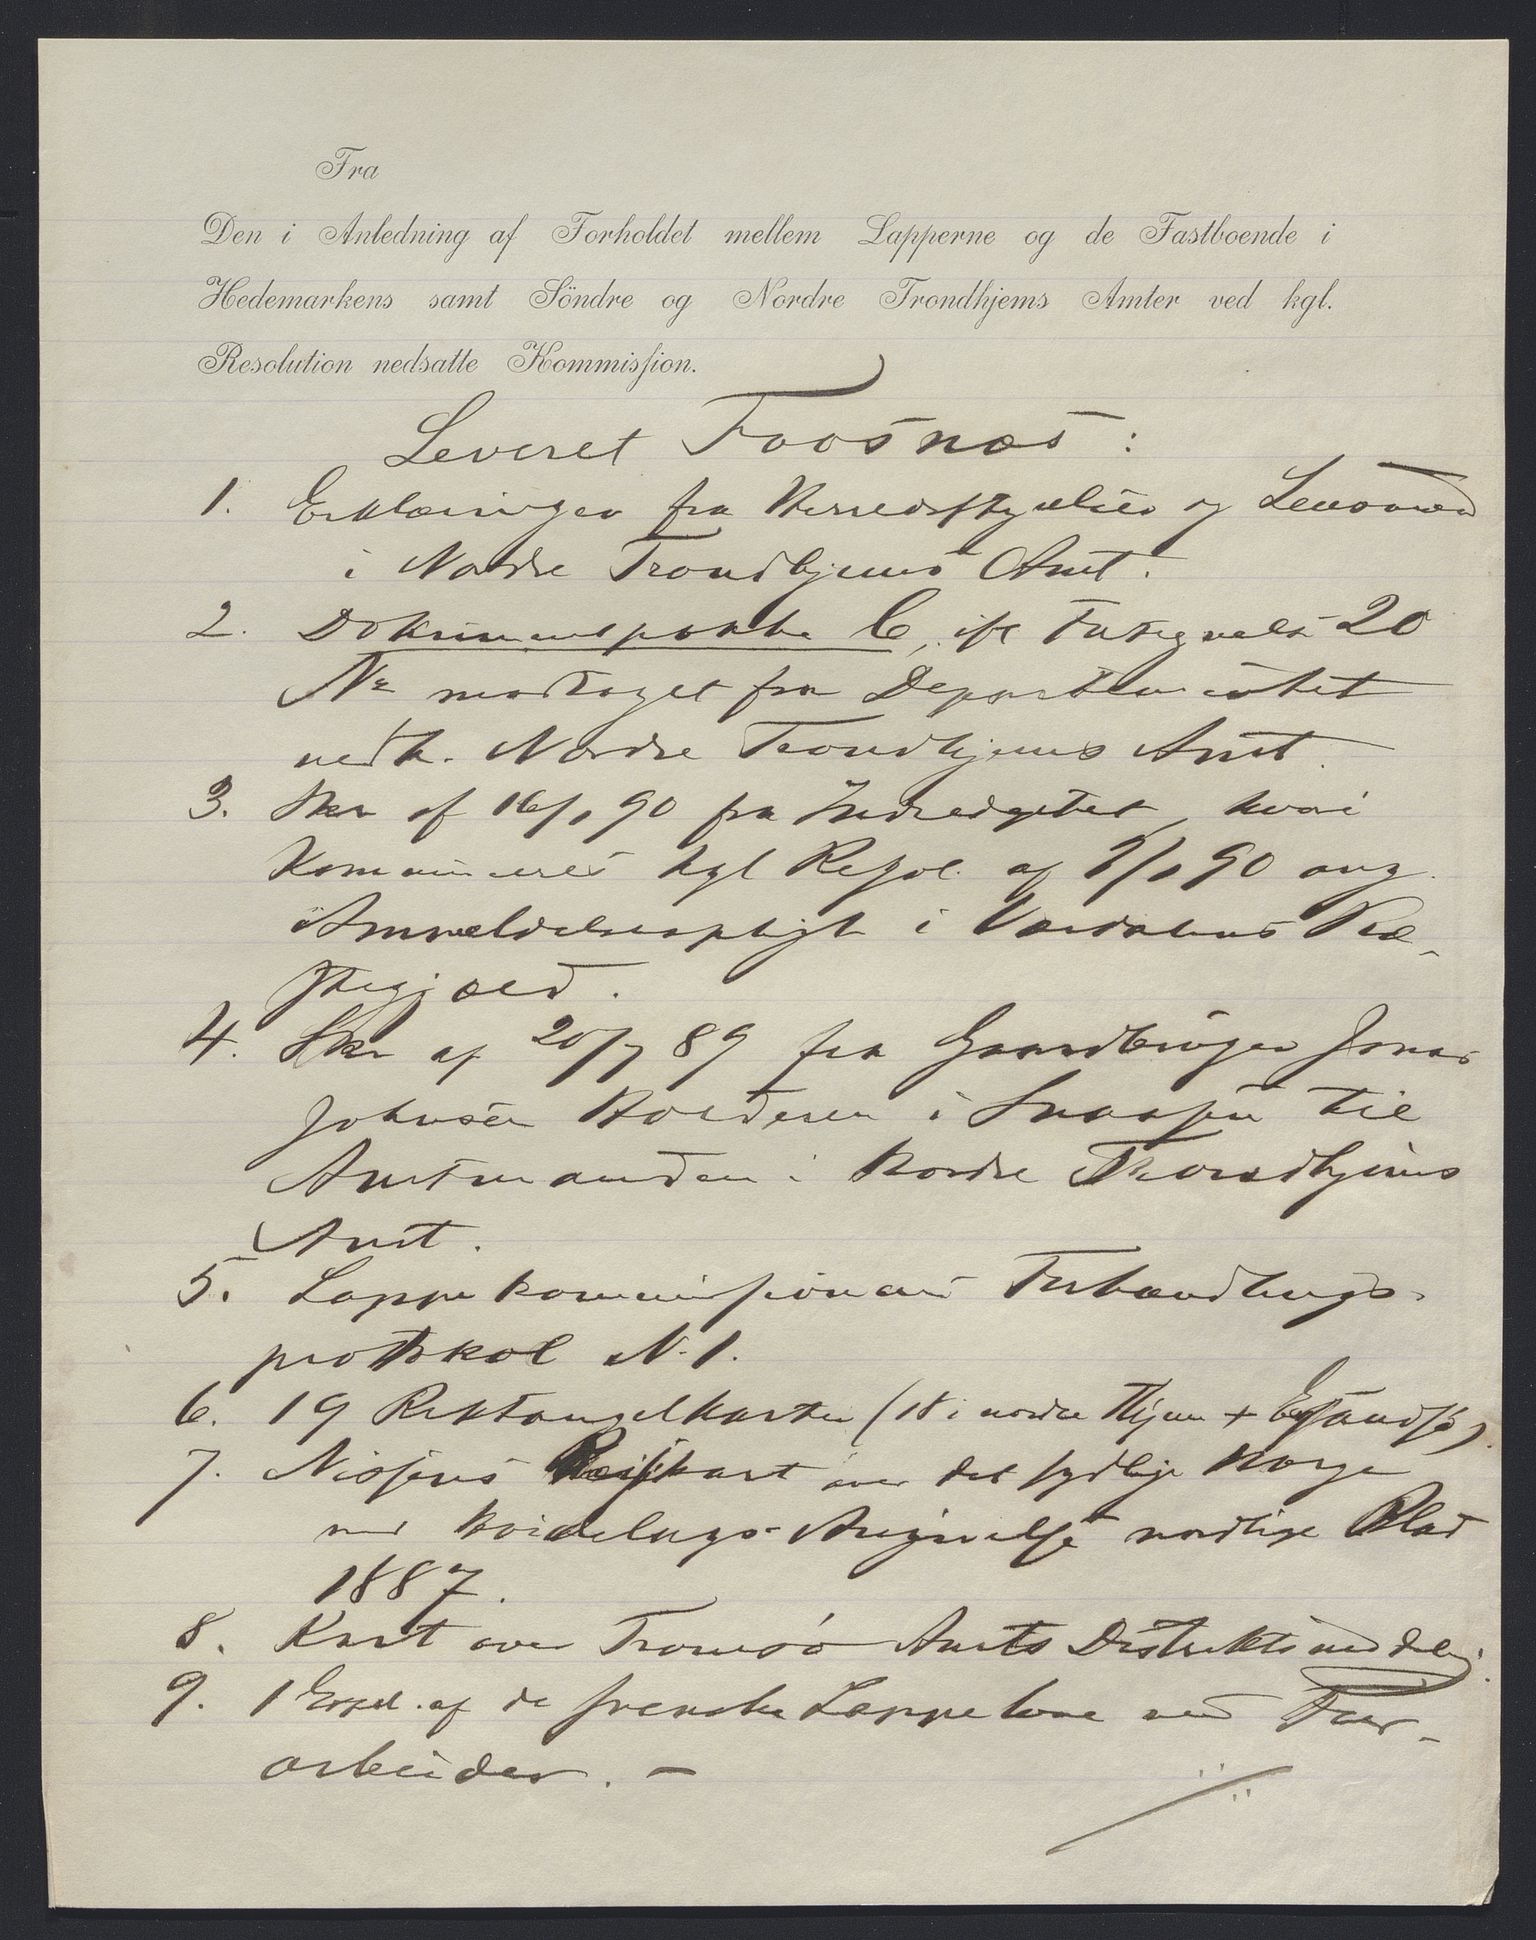 Fra
Den i Anledning af Forholdet mellem Lapperne og de Fastboende i
Hedemarkens samt Söndre og Nordre Trondhjems Amter ved kgl.
Resolution nedsatte Kommission.
Leveret Foosnæs:
1. Erklæringer fra Herredsstyrelser og Lensmænd
i Nordre Trondhjems Amt.
2. Dokumentpakke C, ifl Fortegnelse 20
No modtaget fra Departementet
vedk. Nordre Trondhjems Amt.
3. Skr af 16/1 90 fra Indredeptet, hvori
Kommuneres kgl Resol. af 9/1 90 ang.
Anmeldelsespligt i Værdalens Præ-
stegjæld.
4. Skr af 20/7 89 fra Gaardbruger Jonas
Johnsen i Snaasen til
Amtmanden i Nordre Trondhjems
Amt.
5. Lappekommissionens Forhandlings-
protokol N. 1.
6. 19 Rektangelkarter (18 i nordre Thjem +
7. Nissens Reisekart over det sydlige Norge
med Høidelags-Angivelse nordlige Blad
1887.
8. Kart over Tromsö Amts Distriktsinddeling.
9. 1 Expl. af de svenske Lappelove med For-
arbeider. -